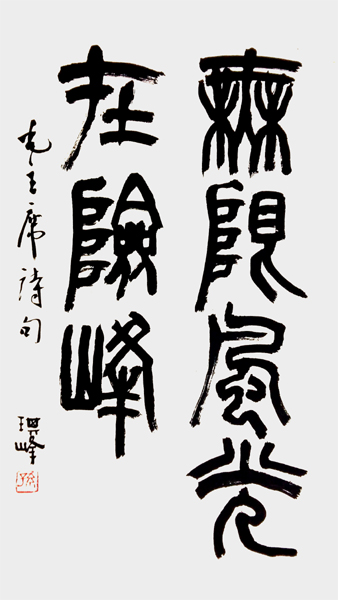 無限風光
在險峰
毛主席詩句